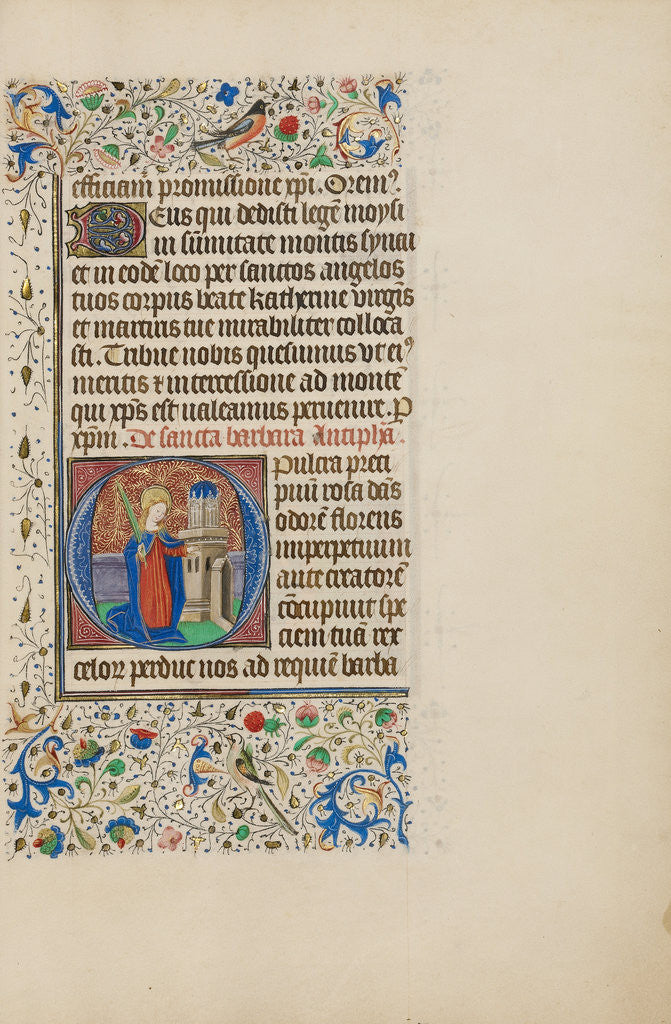 efficiam̄ promissione xp̄i. Orem⁹.
Deus qui dedisti legē moysi
in sūmitate montis synai
et in eodē loco per sanctos angelos
tuos corpus beate katherine virgīs
et martiris tue mirabiliter colloca
sti. Tribue nobis quesumus vt ei⁹
meritis ⁊ intercessione ad montē
qui xp̄s est ualeamus peruenire. P
xpm̄. De sancta barbara Antiph̄a.
Pulcra preci
puū rosa dās
odorē florens
imperpetuum
ante creatorē
cōcupiuit spe
ciem tuā rex
celoꝝ perduc nos ad requiē barba